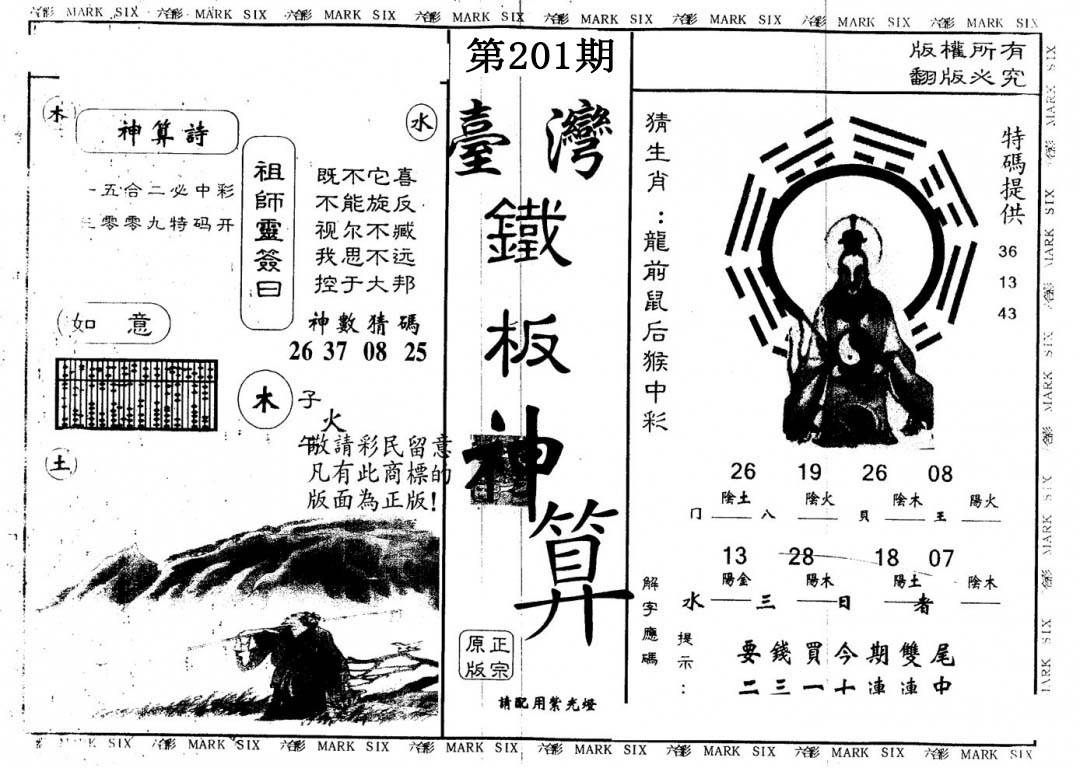 六彩 MARK SIX 六彩 MARK SIX 六彩 MARK SIX 六彩 MARK SIX 六彩 MARK SIX 六彩 MARK SIX 六彩 MARK SIX 六彩 MARK SIX
第201期
版權所有
翻版必究
臺灣
鐵
板
神
算
正宗
原版
請配用紫光燈
木
水
神算詩
一五合二必中彩
三零零九特码开
祖師靈簽曰
既不它喜
不能旋反
视尔不臧
我思不远
控于大邦
神數猜碼
26 37 08 25
如意
木
子
火
午
土
敬請彩民留意
凡有此商標的
版面為正版!
猜生肖：龍前鼠后猴中彩
特碼提供
36
13
43
26 19 26 08
陰土 陰火 陰木 陽火
冂 八 貝 王
13 28 18 07
陽金 陽木 陽土 陰木
水 三 日 者
解字應碼
提示：
要錢買今期雙尾
二三一十連連中
MARK SIX 六彩 MARK SIX 六彩 MARK SIX 六彩 MARK SIX 六彩 MARK SIX
SIX 六彩 MARK SIX 六彩 MARK SIX 六彩 MARK SIX 六彩 MARK SIX 六彩 MARK SIX 六彩 MARK SIX 六彩 MARK SIX